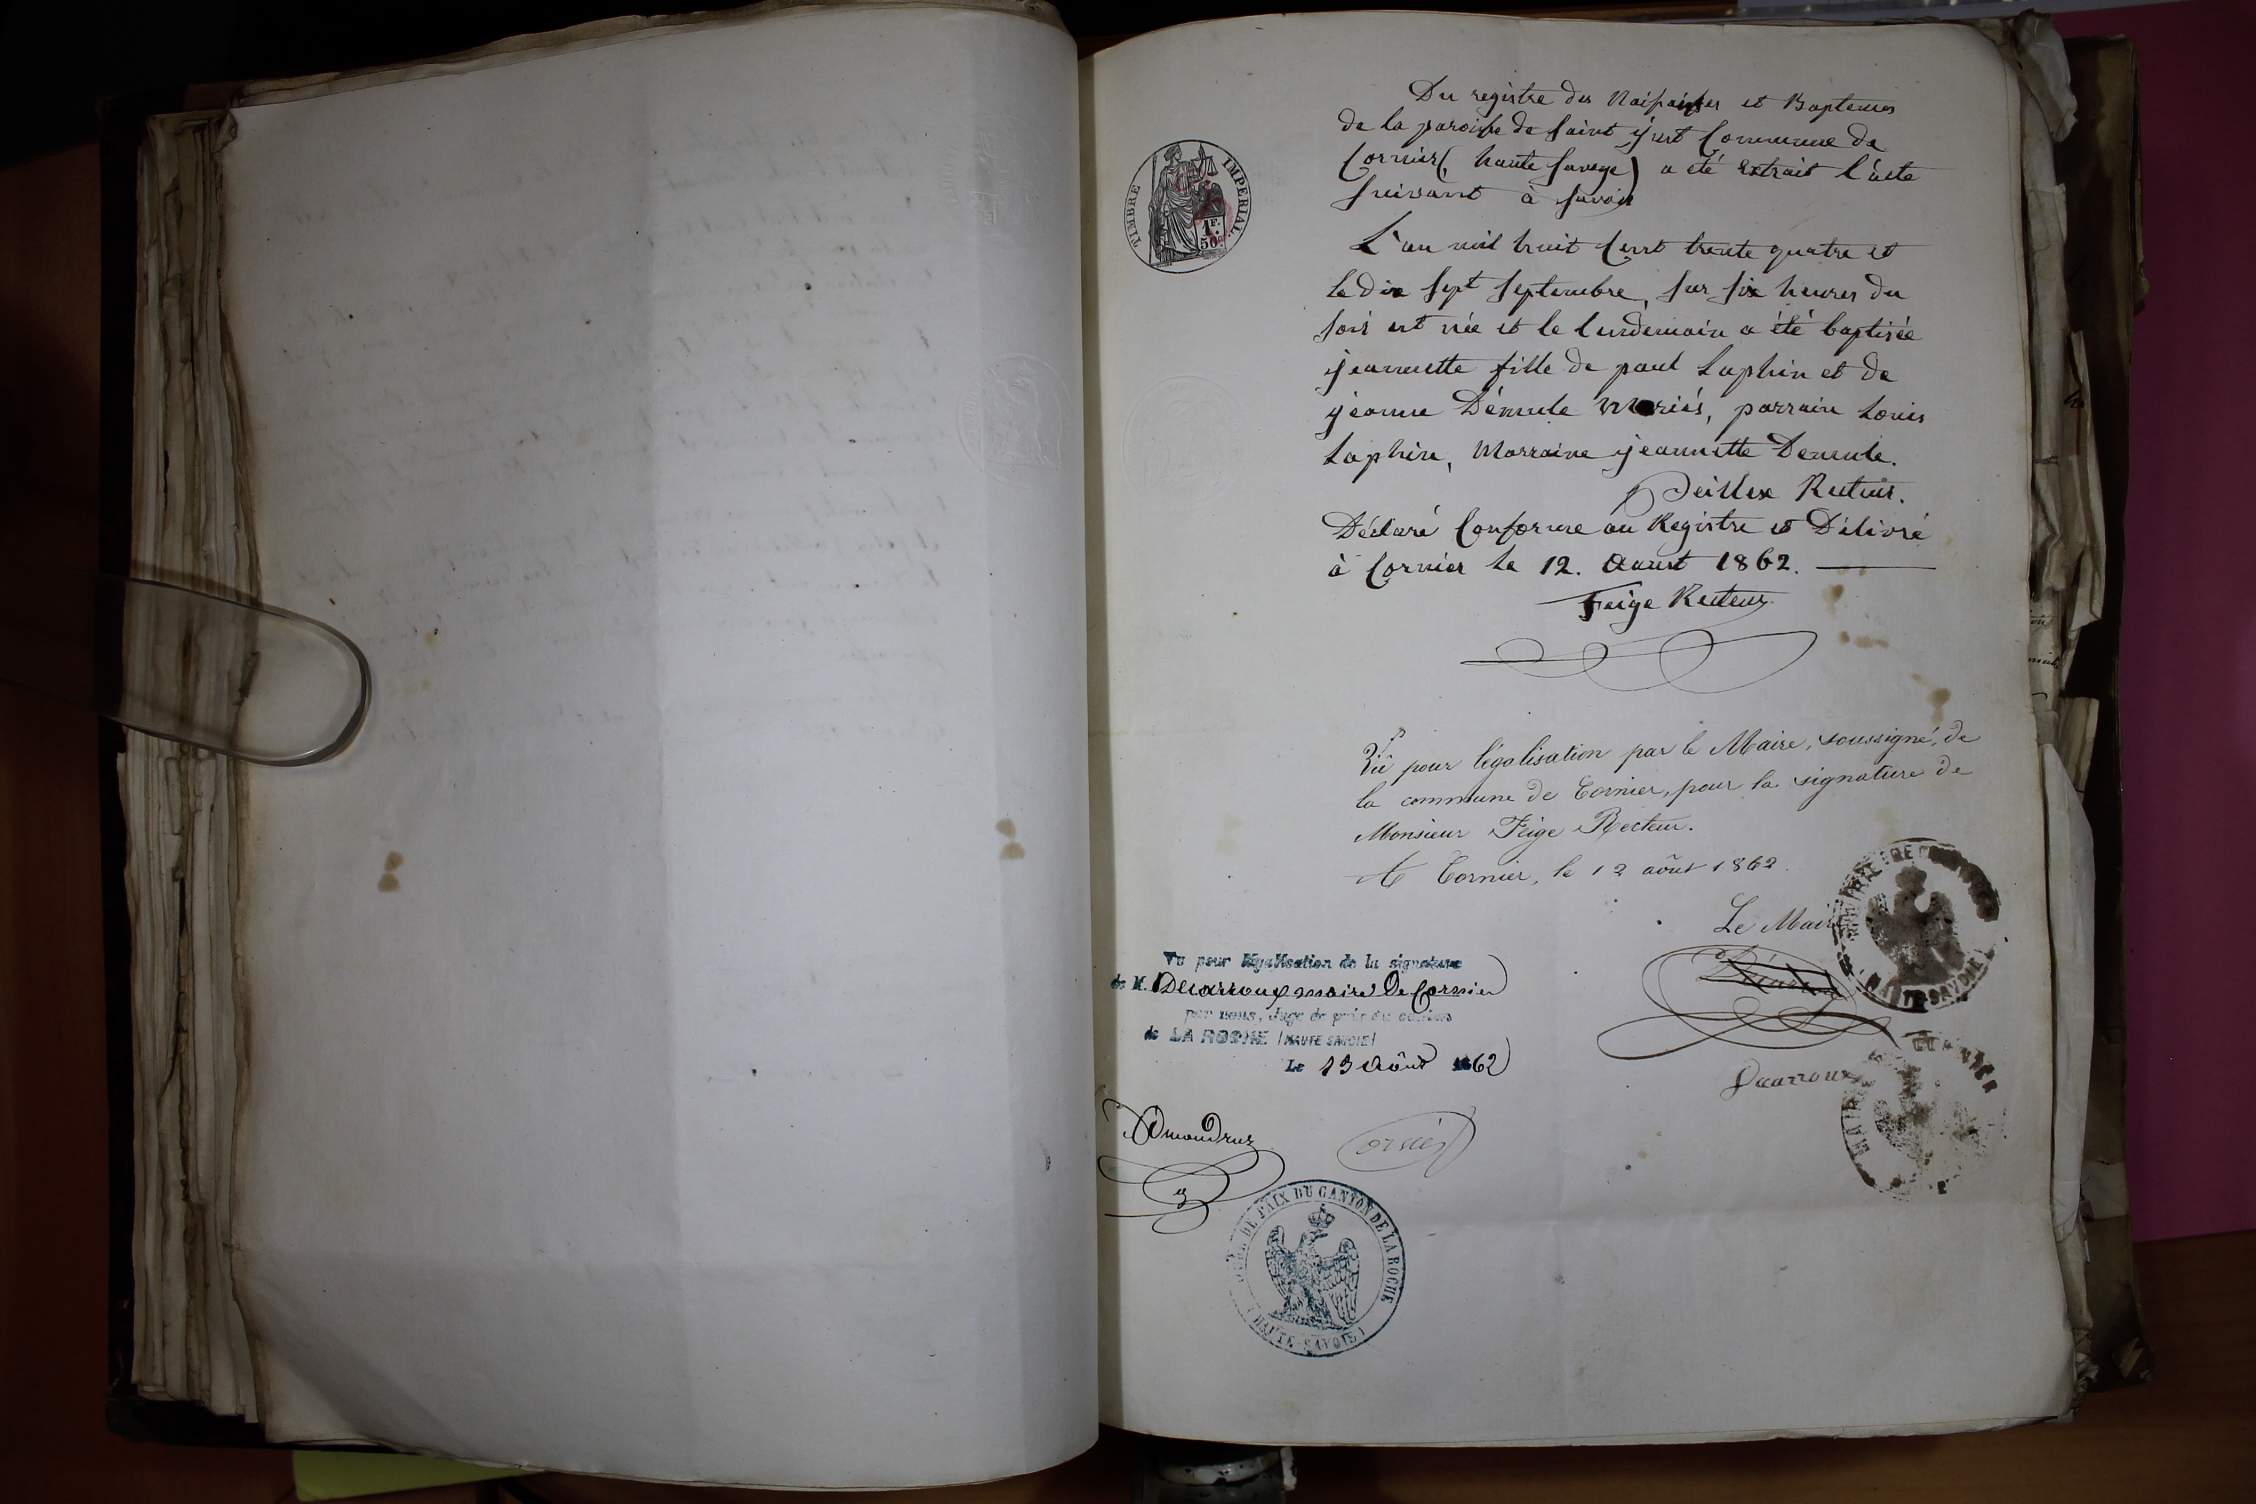 Du registre des Naissances et Baptemes
de la paroisse de Saint Just Commune de
Cornier (haute Savoye) a été extrait l'acte
suivant à savoir
TIMBRE IMPERIAL
1F.
50c
L'an mil huit Cent trente quatre et
le dix Sept Septembre, sur six heures du
soir est née et le lendemain a été baptisée
jeannette fille de paul Laphin et de
jéanne Démule Mariés, parrain Louis
Laphin, Marraine jeannette Demule.
Recteur.
Déclaré Conforme au Registre et Délivré
à Cornier le 12. Aoust 1862.
Feige Recteur
Vu pour légalisation par le Maire, soussigné, de
la commune de Cornier, pour la signature de
Monsieur Feige Recteur.
A Cornier, le 12 août 1862.
Le Maire
Vu pour légalisation de la signature
de M. Decarroux maire De Cornier
par nous, Juge de paix du canton
de LA ROCHE (HAUTE SAVOIE)
Le 13 Août 1862
Decarroux
MAIRIE DE CORNIER
HAUTE-SAVOIE
MAIRIE CORNIER
DE PAIX DU CANTON DE LA ROCHE
(HAUTE-SAVOIE)